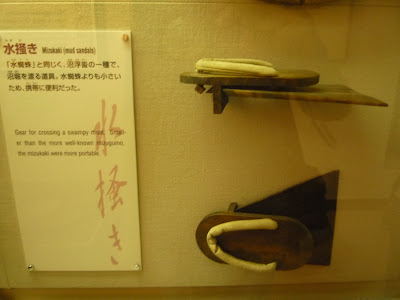 水掻き Mizukaki (mud sandals)
「水蜘蛛」と同じく、沼浮沓の一種で、
沼堀を渡る道具。水蜘蛛よりも小さい
ため、携帯に便利だった。
Gear for crossing a swampy moat. Small-
er than the more well-known mizugumo,
the mizukaki were more portable.
水掻き